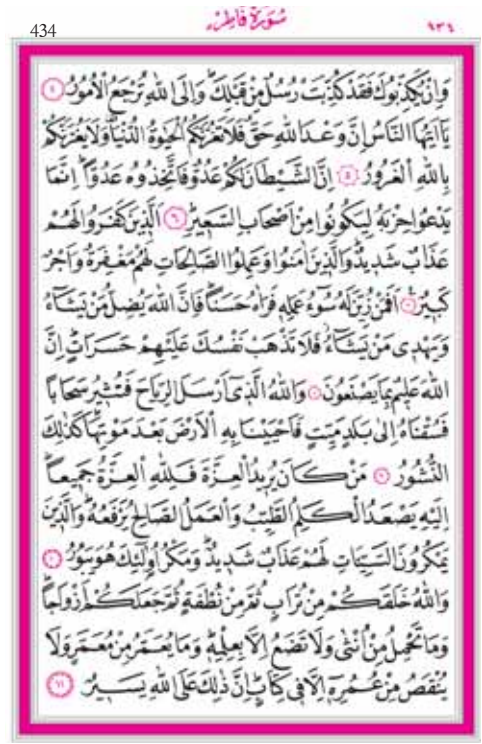 434 سُورَةُ فَاطِرٍ ٤٣٤
وَاِنْ يُكَذِّبُوكَ فَقَدْ كُذِّبَتْ رُسُلٌ مِنْ قَبْلِكَۜ وَاِلَى اللهِ تُرْجَعُ الْاُمُورُ ﴿٤﴾
يَٓا اَيُّهَا النَّاسُ اِنَّ وَعْدَ اللهِ حَقٌّ فَلَا تَغُرَّنَّكُمُ الْحَيٰوةُ الدُّنْيَا۠ وَلَا يَغُرَّنَّكُمْ
بِاللهِ الْغَرُورُ ﴿٥﴾ اِنَّ الشَّيْطَانَ لَكُمْ عَدُوٌّ فَاتَّخِذُوهُ عَدُوًّاۜ اِنَّمَا
يَدْعُوا حِزْبَهُ لِيَكُونُوا مِنْ اَصْحَابِ السَّعِيرِۜ ﴿٦﴾ اَلَّذِينَ كَفَرُوا لَهُمْ
عَذَابٌ شَدِيدٌۜ وَالَّذِينَ اٰمَنُوا وَعَمِلُوا الصَّالِحَاتِ لَهُمْ مَغْفِرَةٌ وَاَجْرٌ
كَبِيرٌ۟ ﴿٧﴾ اَفَمَنْ زُيِّنَ لَهُ سُٓوءُ عَمَلِهِ فَرَاٰهُ حَسَنًاۜ فَاِنَّ اللهَ يُضِلُّ مَنْ يَشَٓاءُ
وَيَهْدِي مَنْ يَشَٓاءُۘ فَلَا تَذْهَبْ نَفْسُكَ عَلَيْهِمْ حَسَرَاتٍۜ اِنَّ
اللهَ عَلِيمٌ بِمَا يَصْنَعُونَ ﴿٨﴾ وَاللهُ الَّذِٓي اَرْسَلَ الرِّيَاحَ فَتُثِيرُ سَحَابًا
فَسُقْنَاهُ اِلٰى بَلَدٍ مَيِّتٍ فَاَحْيَيْنَا بِهِ الْاَرْضَ بَعْدَ مَوْتِهَاۜ كَذٰلِكَ
النُّشُورُ ﴿٩﴾ مَنْ كَانَ يُرِيدُ الْعِزَّةَ فَلِلّٰهِ الْعِزَّةُ جَمِيعًاۜ
اِلَيْهِ يَصْعَدُ الْكَلِمُ الطَّيِّبُ وَالْعَمَلُ الصَّالِحُ يَرْفَعُهُۜ وَالَّذِينَ
يَمْكُرُونَ السَّيِّـَٔاتِ لَهُمْ عَذَابٌ شَدِيدٌۜ وَمَكْرُ اُو۬لٰٓئِكَ هُوَ يَبُورُ ﴿١٠﴾
وَاللهُ خَلَقَكُمْ مِنْ تُرَابٍ ثُمَّ مِنْ نُطْفَةٍ ثُمَّ جَعَلَكُمْ اَزْوَاجًاۜ
وَمَا تَحْمِلُ مِنْ اُنْثٰى وَلَا تَضَعُ اِلَّا بِعِلْمِهِۜ وَمَا يُعَمَّرُ مِنْ مُعَمَّرٍ وَلَا
يُنْقَصُ مِنْ عُمُرِهِٓ اِلَّا فِي كِتَابٍۜ اِنَّ ذٰلِكَ عَلَى اللهِ يَسِيرٌ ﴿١١﴾